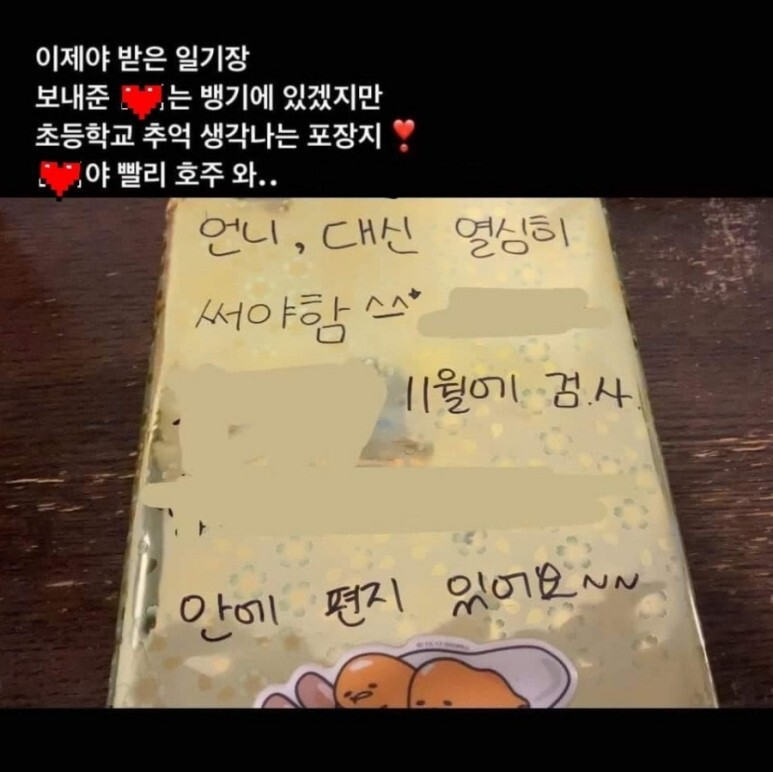 이제야 받은 일기장
보내준 는 뱅기에 있겠지만
초등학교 추억 생각나는 포장지❣️
야 빨리 호주 와..
언니, 대신 열심히
써야함 ^^
11월에 검.사.
안에 편지 있어요~~